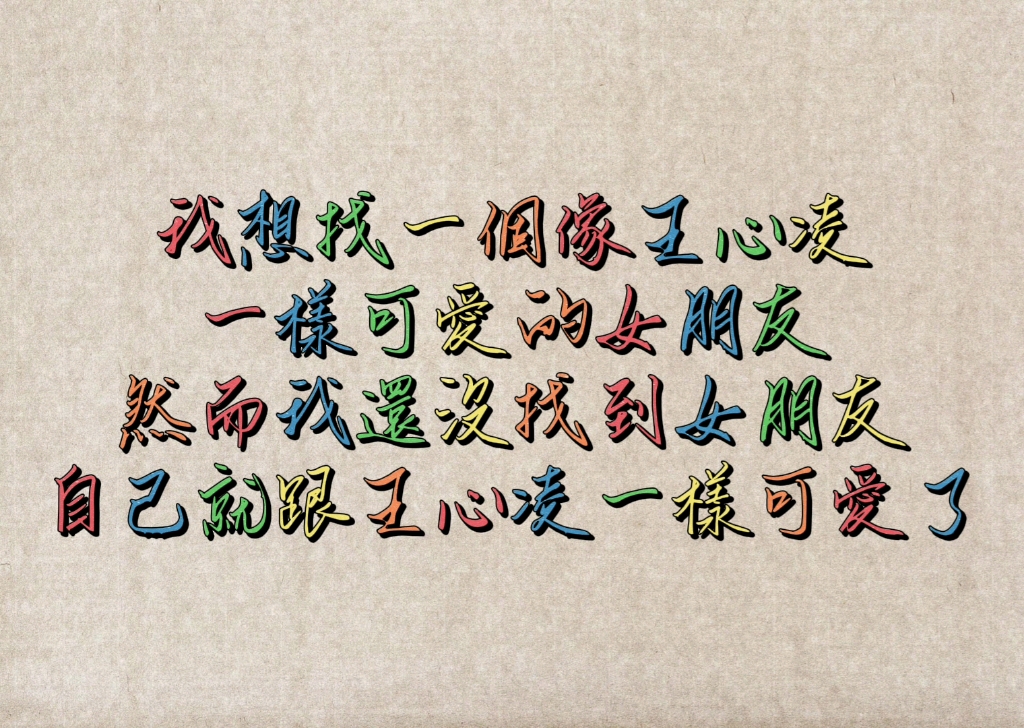 我想找一個像王心凌
一樣可愛的女朋友
然而我還沒找到女朋友
自己就跟王心凌一樣可愛了